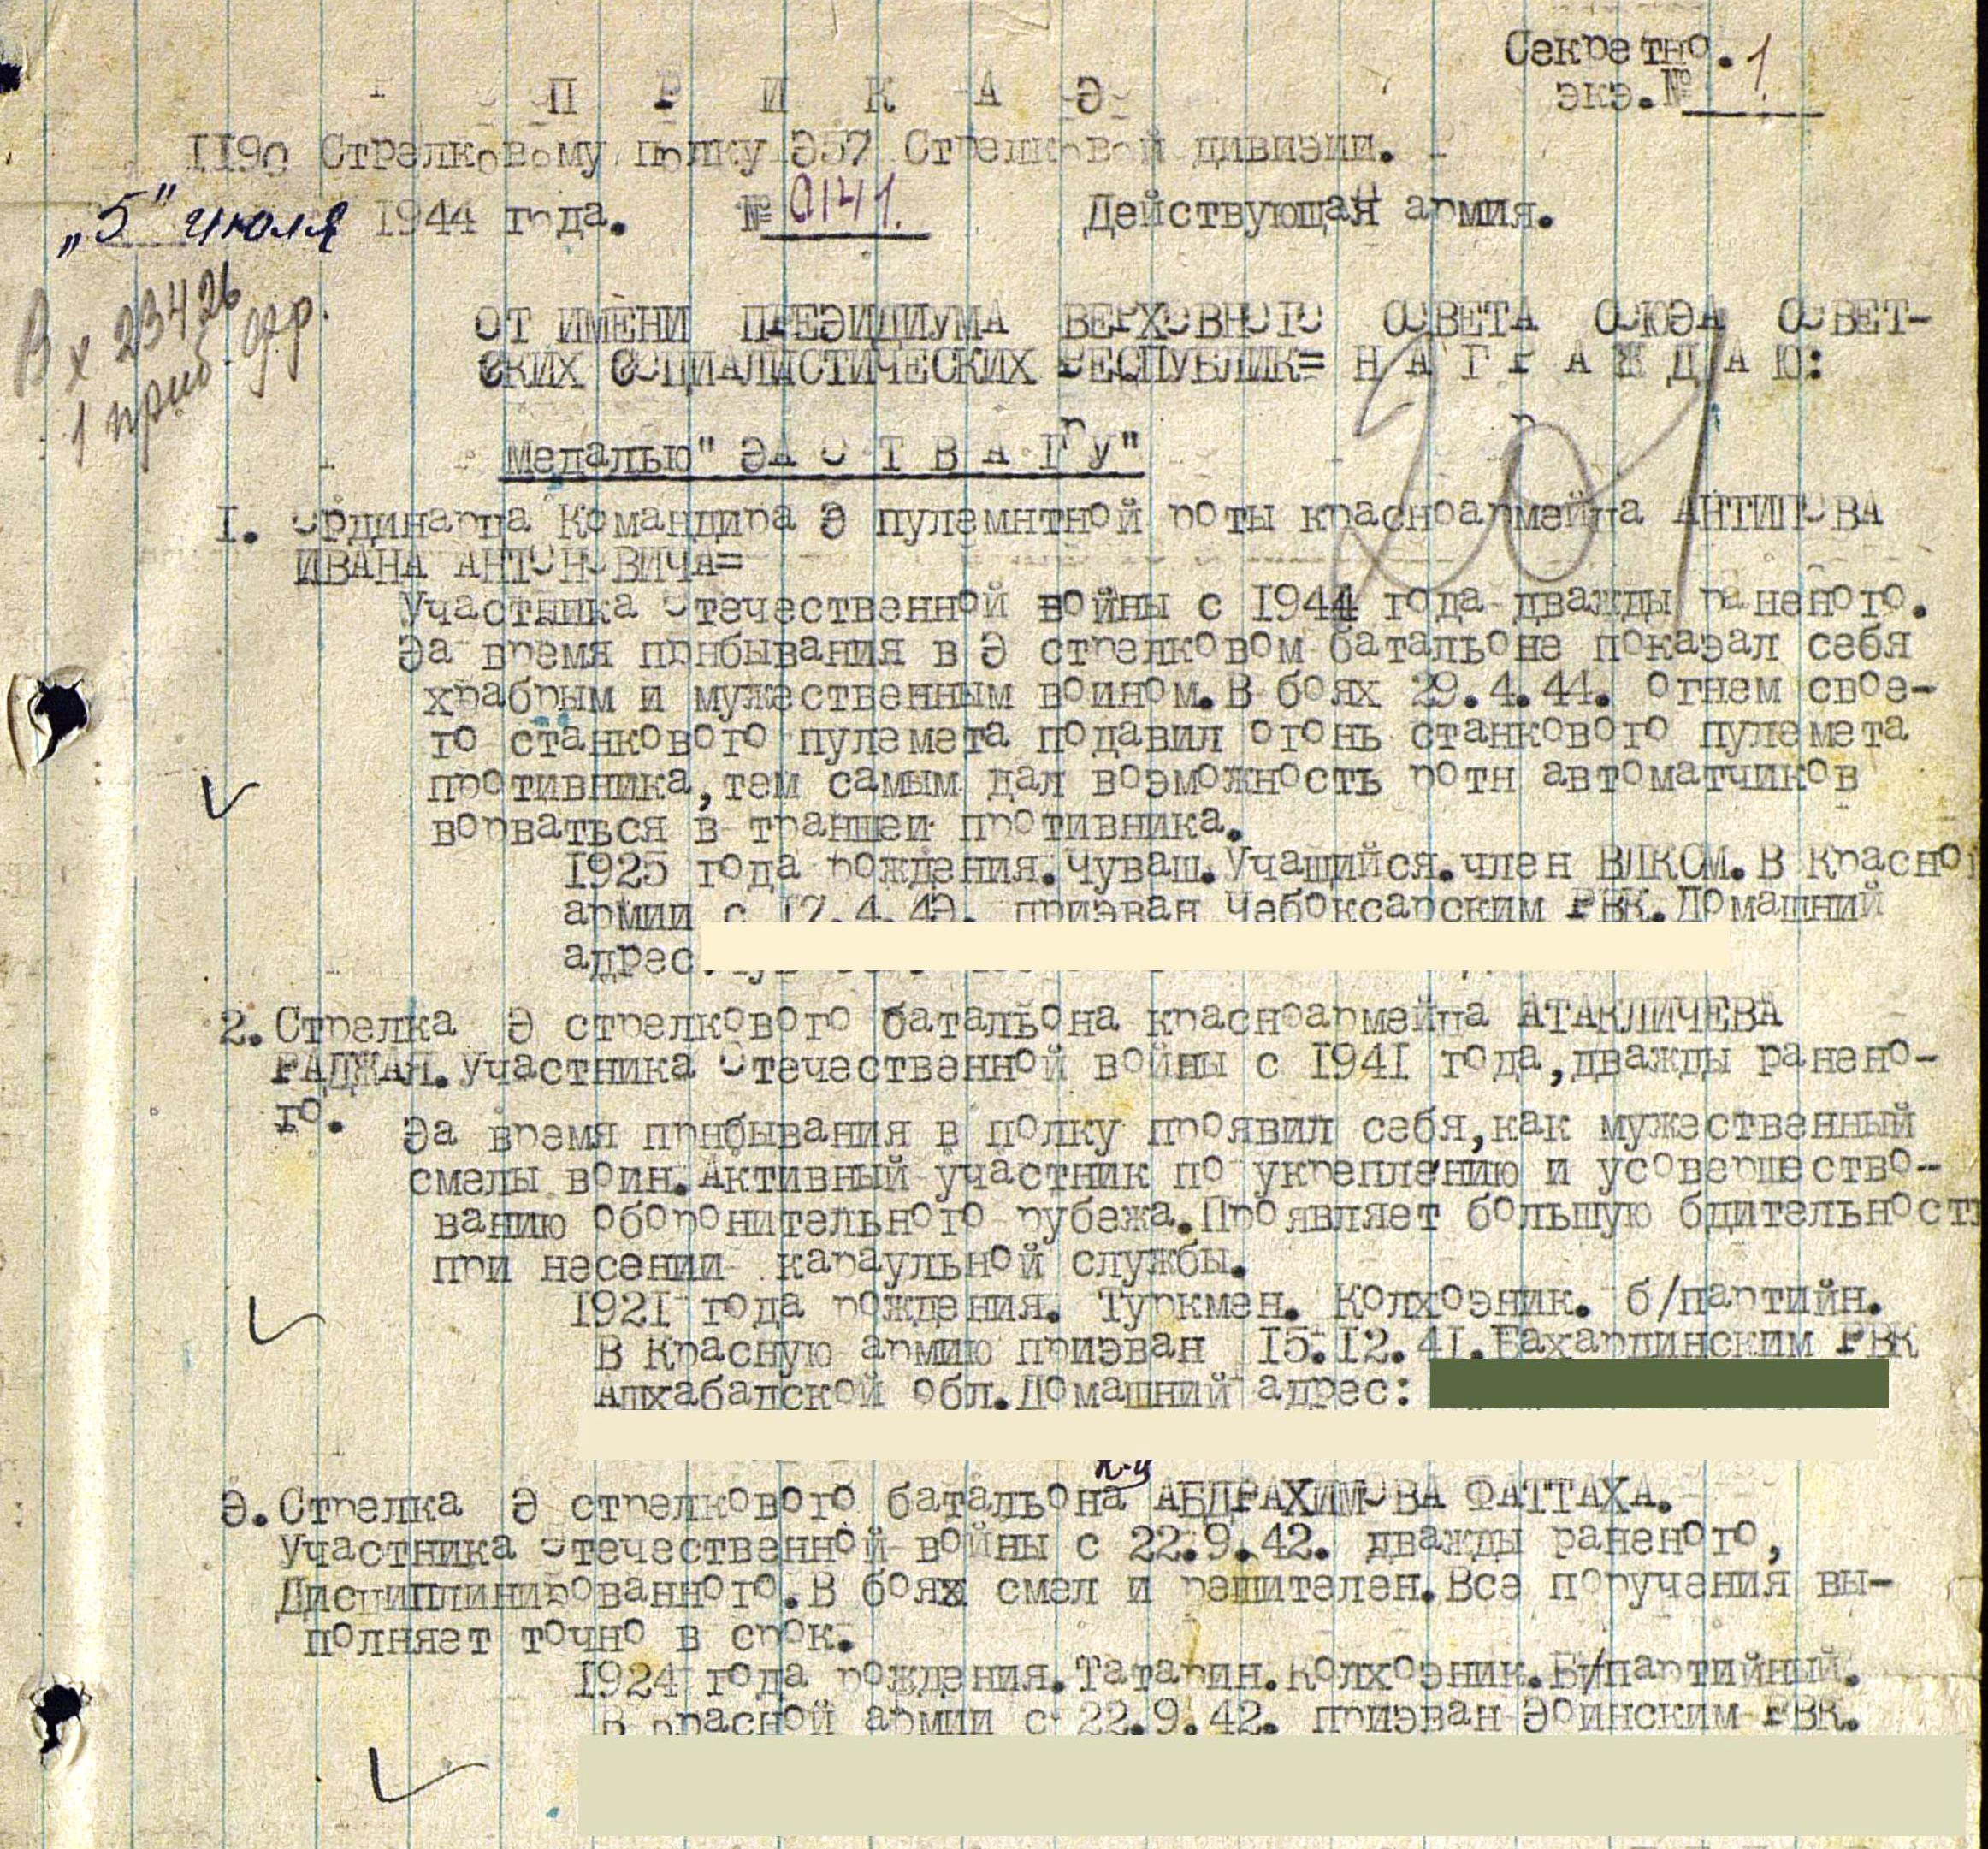 Секретно.
экз.№ 1
П Р И К А З
1190 Стрелковому полку 357 Стрелковой дивизии.
„5" июля 1944 года. № 0141. Действующая армия.
Вх 23426
1 приб.
ОТ ИМЕНИ ПРЕЗИДИУМА ВЕРХОВНОГО СОВЕТА СОЮЗА СОВЕТ-
СКИХ СОЦИАЛИСТИЧЕСКИХ РЕСПУБЛИК= Н А Г Р А Ж Д А Ю:
201
Медалью" ЗА О Т В А Г У"
1. Ординарца Командира 3 пулемнтной роты красноармейца АНТИПОВА
ИВАНА АНТОНОВИЧА=
Участника Отечественной войны с 1944 года дважды раненого.
За время прнбывания в 3 стрелковом батальоне показал себя
храбрым и мужественным воином.В боях 29.4.44. огнем свое-
го станкового пулемета подавил огонь станкового пулемета
противника,тем самым дал возможность ротн автоматчиков
ворваться в траншеи противника.
1925 года рождения.Чуваш.Учащийся.член ВЛКСМ.В Красной
армии с 17.4.43. призван Чебоксарским РВК.Домашний
адрес.
2.Стрелка 3 стрелкового батальона красноармейца АТАКЛИЧЕВА
РАДЖАЯ.Участника Отечественной войны с 1941 года,дважды ранено-
го.
За время прнбывания в полку проявил себя,как мужественный
смелы воин.Активный участник по укреплению и усовершество-
ванию оборонительного рубежа.Проявляет большую бдительность
при несении караульной службы.
1921 года рождения. Туркмен. Колхозник. б/партийн.
В Красную армию призван 15.12.41.Бахардинским РВК
Ашхабадской обл.Домашний адрес:
к-ца
3.Стрелка 3 стрелкового батальона АБДРАХИМОВА ФАТТАХА.
Участника Отечественной войны с 22.9.42. дважды раненого,
Дисциплинированного.В боях смел и решителен.Все поручения вы-
полняет точно в срок.
1924 года рождения.Татарин.Колхозник.Б/партийный.
В Красной армии с 22.9.42. призван Зоинским РВК.